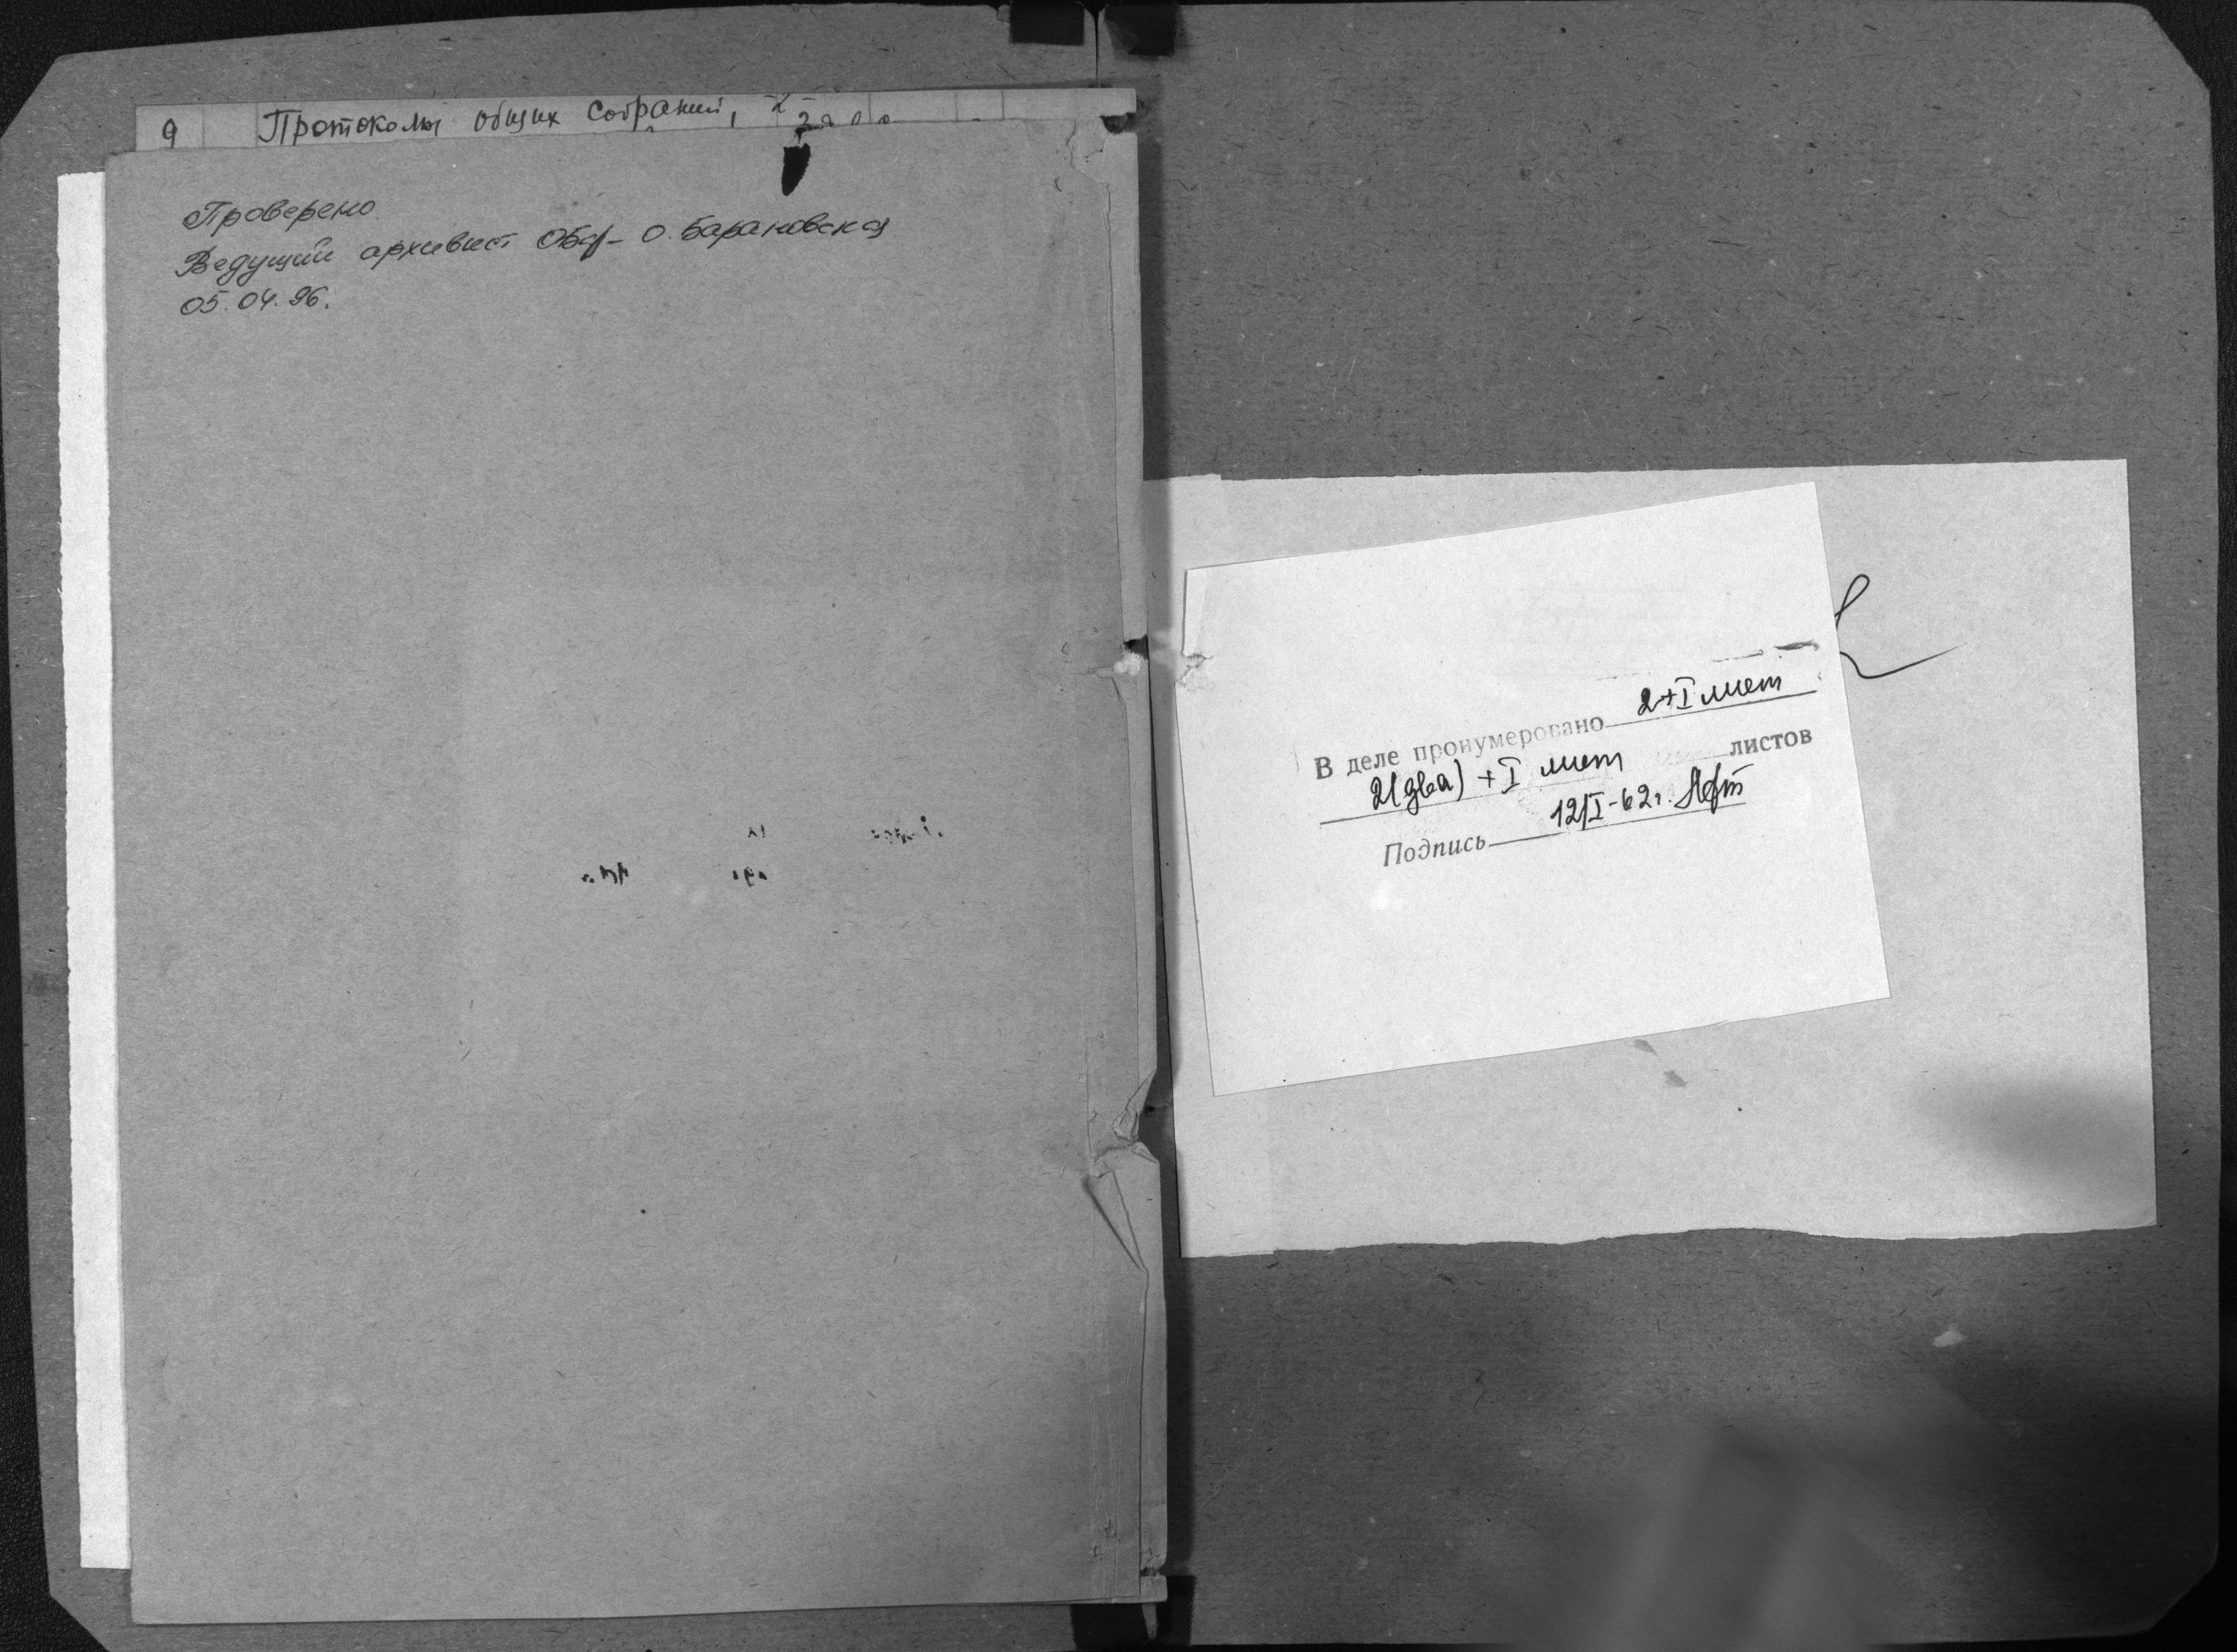 9 Протоколы общих собраний,
Проверено
Ведущий архивист О. Барановская
05.04.96.
2+I лист
В деле пронумеровано
листов
2(два) + I лист
12/I-62г.
Подпись